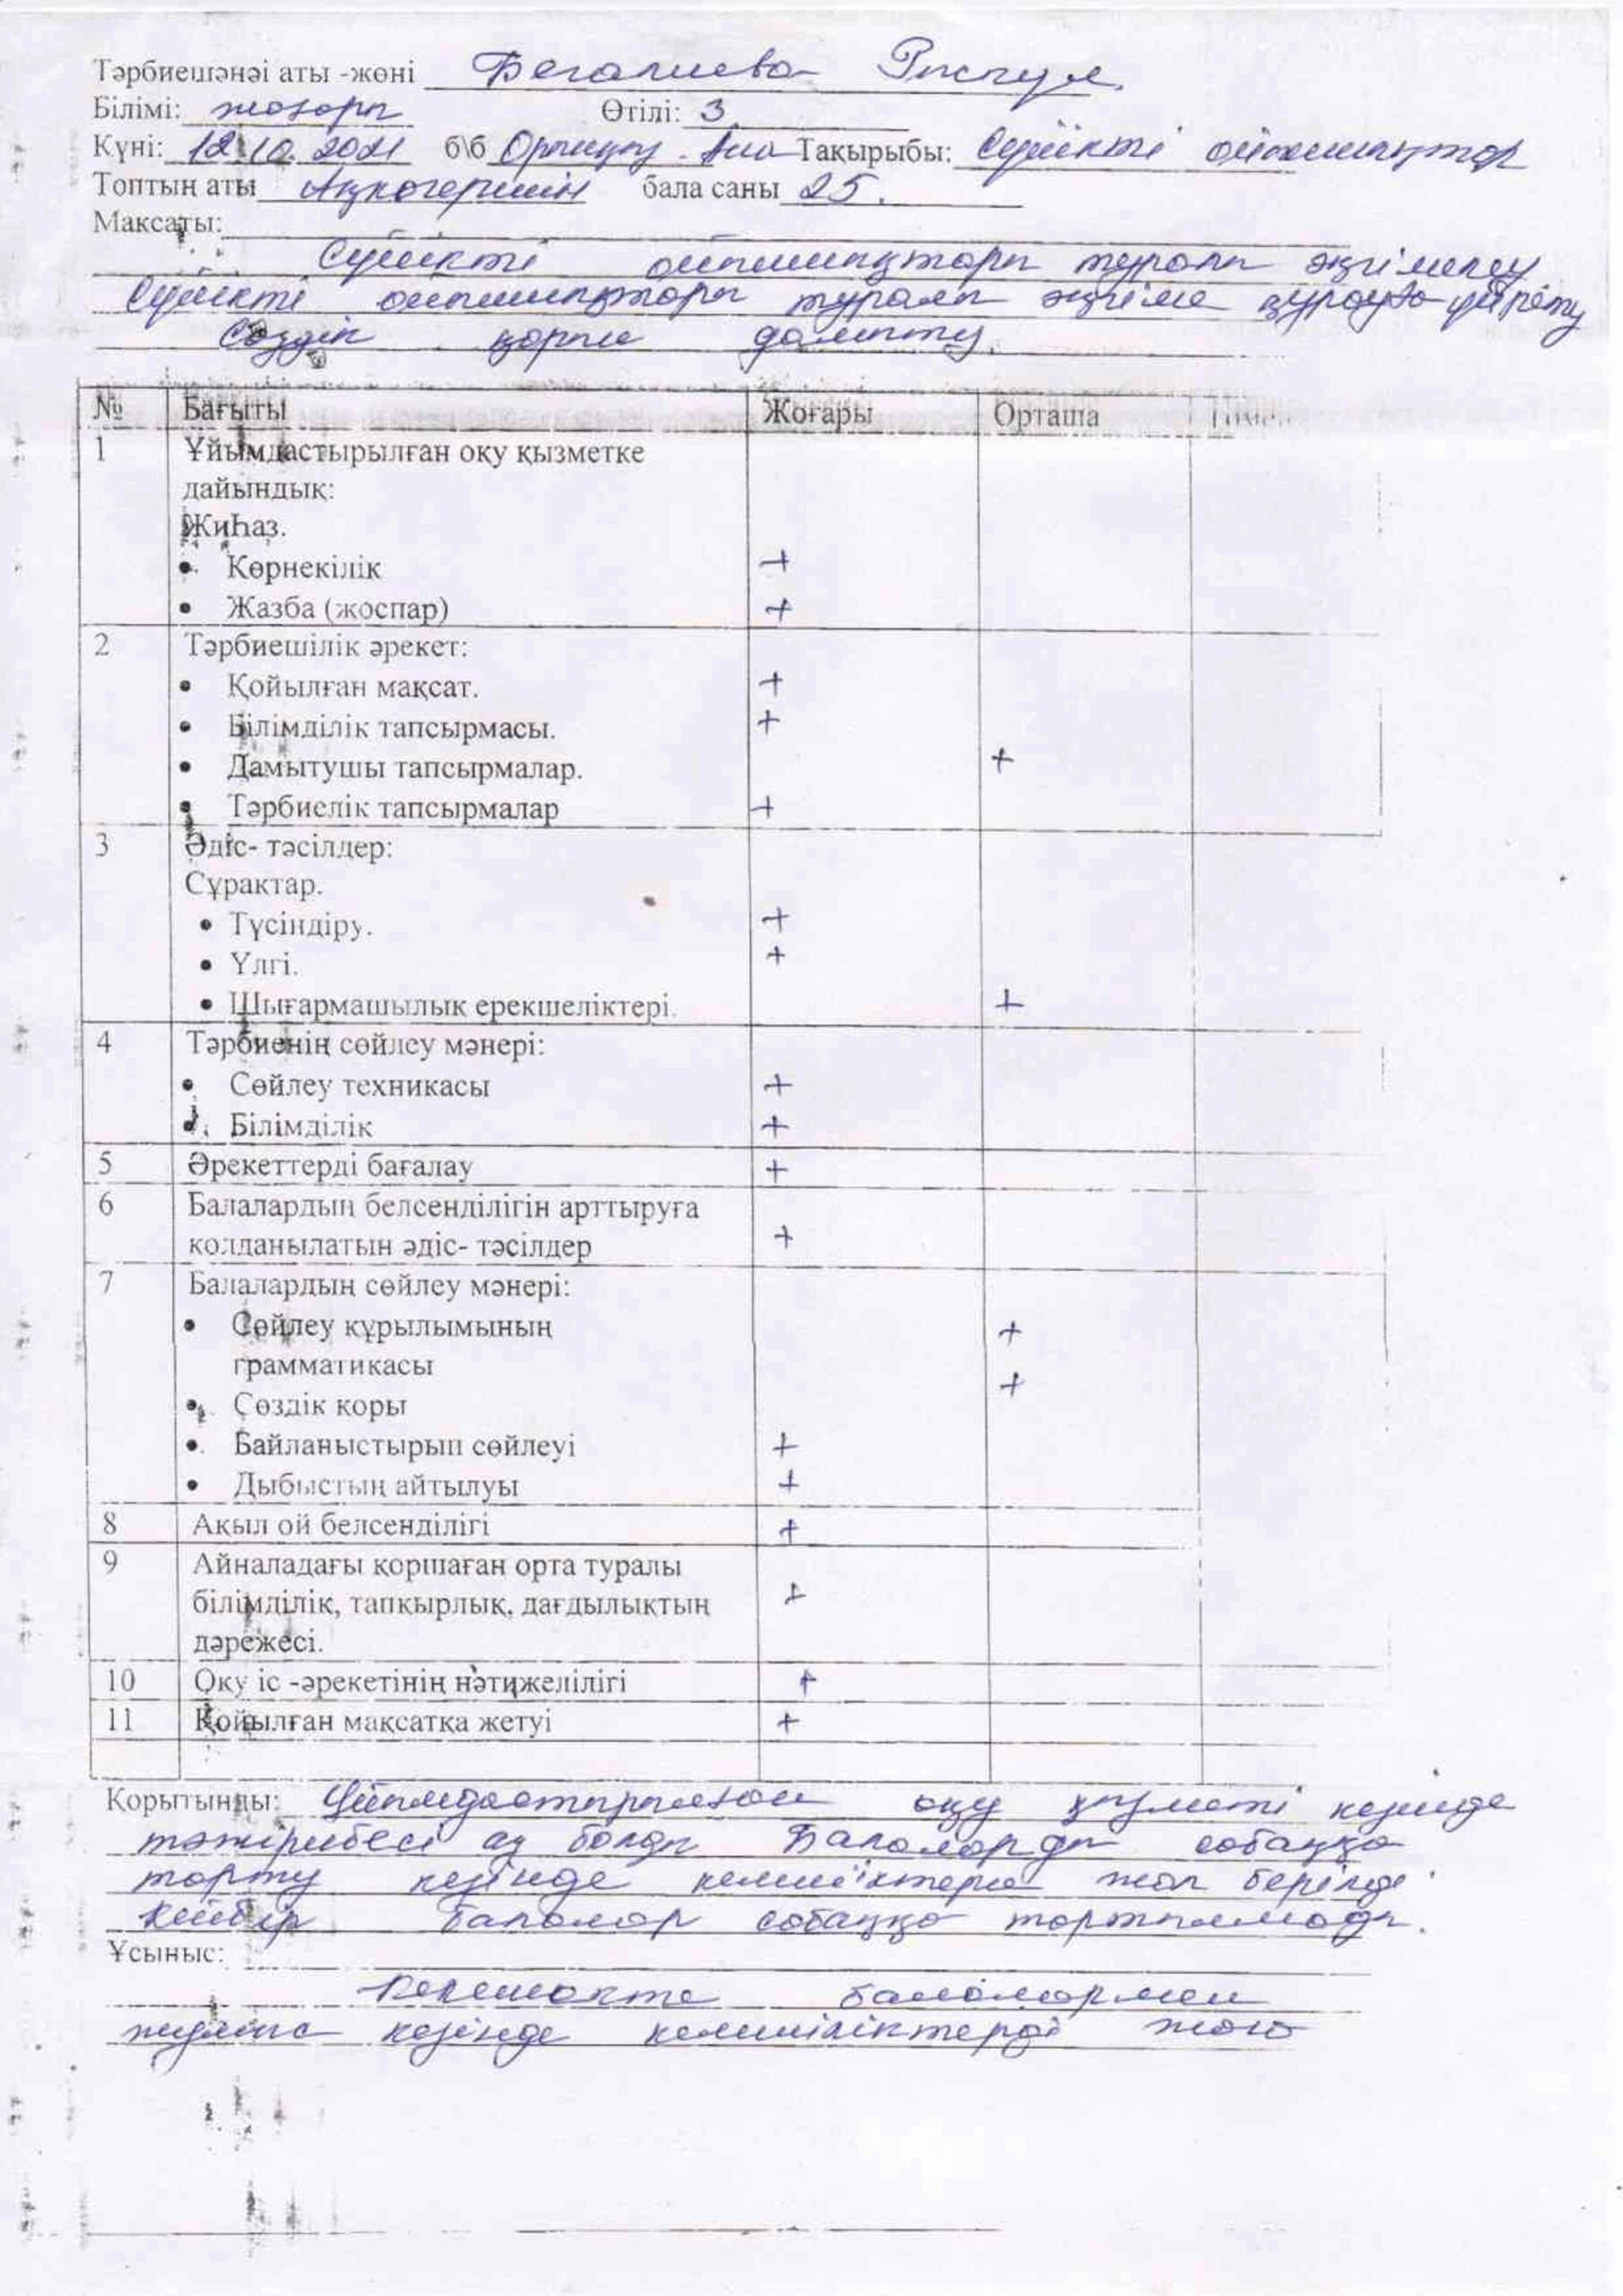 Тәрбиешәнәі аты -жөні Бегалиева Рысгул.
Білімі: жоғары Өтілі: 3
Күні: 12.10.2021 б\б Орынқұл. Ана Тақырыбы: Сүйікті ойыншықтар
Топтың аты Ақкөгершін бала саны 25.
Максаты:
Сүйікті ойыншықтары туралы әңгімелеу
Сүйікті ойыншықтары туралы әңгіме құрауға үйрету
Сөздік қорын дамыту.
№ Бағыты Жоғары Орташа Төмен
1 Ұйымдастырылған оқу қызметке
дайындық:
Жиһаз.
• Көрнекілік +
• Жазба (жоспар) +
2 Тәрбиешілік әрекет:
• Қойылған мақсат. +
• Білімділік тапсырмасы. +
• Дамытушы тапсырмалар. +
• Тәрбиелік тапсырмалар +
3 Әдіс- тәсілдер:
Сұрактар.
• Түсіндіру. +
• Үлгі. +
• Шығармашылық ерекшеліктері. +
4 Тәрбиенің сөйлеу мәнері:
• Сөйлеу техникасы +
• Білімділік +
5 Әрекеттерді бағалау +
6 Балалардың белсенділігін арттыруға
колданылатын әдіс- тәсілдер +
7 Балалардың сөйлеу мәнері:
• Сөйлеу құрылымының +
грамматикасы +
• Сөздік коры
• Байланыстырып сөйлеуі +
• Дыбыстың айтылуы +
8 Ақыл ой белсенділігі +
9 Айналадағы қоршаған орта туралы
білімділік, тапқырлық, дағдылықтың +
дәрежесі.
10 Оқу іс -әрекетінің нәтижелілігі +
11 Қойылған мақсатқа жетуі +
Қорытынды: Ұйымдастырылған оқу қызметі кезінде
тәжірибесі аз болды Балаларды сабаққа
тарту кезінде кемшіліктерге жол берілді
Кейбір балалар сабаққа тартылмады.
Ұсыныс:
Келешекте балалармен
жұмыс кезінде кемшіліктерді жою